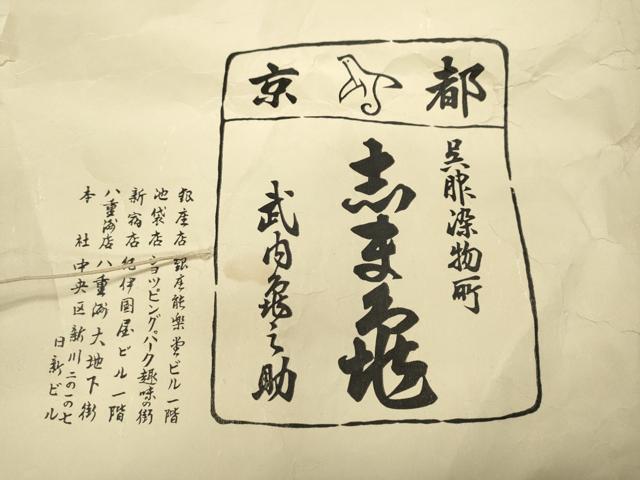 京都
呉服染物所
志ま亀
武内亀之助
銀座店 銀座能楽堂ビル一階
池袋店 ショッピングパーク趣味の街
新宿店 紀伊国屋ビル一階
八重洲店 八重洲大地下街
本社 中央区新川二の一の七
日新ビル